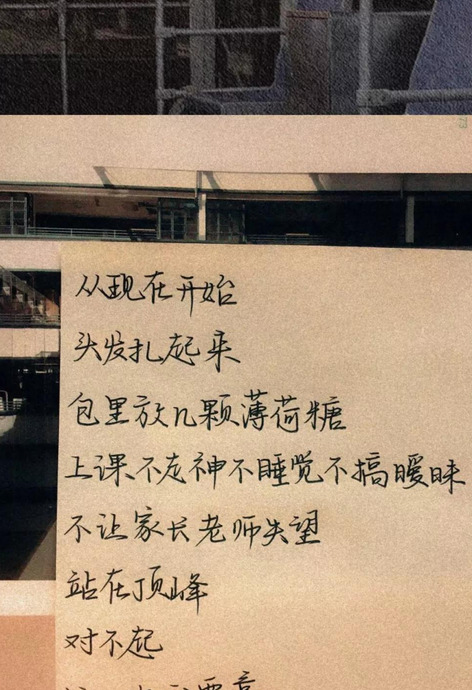 从现在开始
头发扎起来
包里放几颗薄荷糖
上课、不走神不睡觉不搞暧昧
不让家长老师失望
站在顶峰
对不起